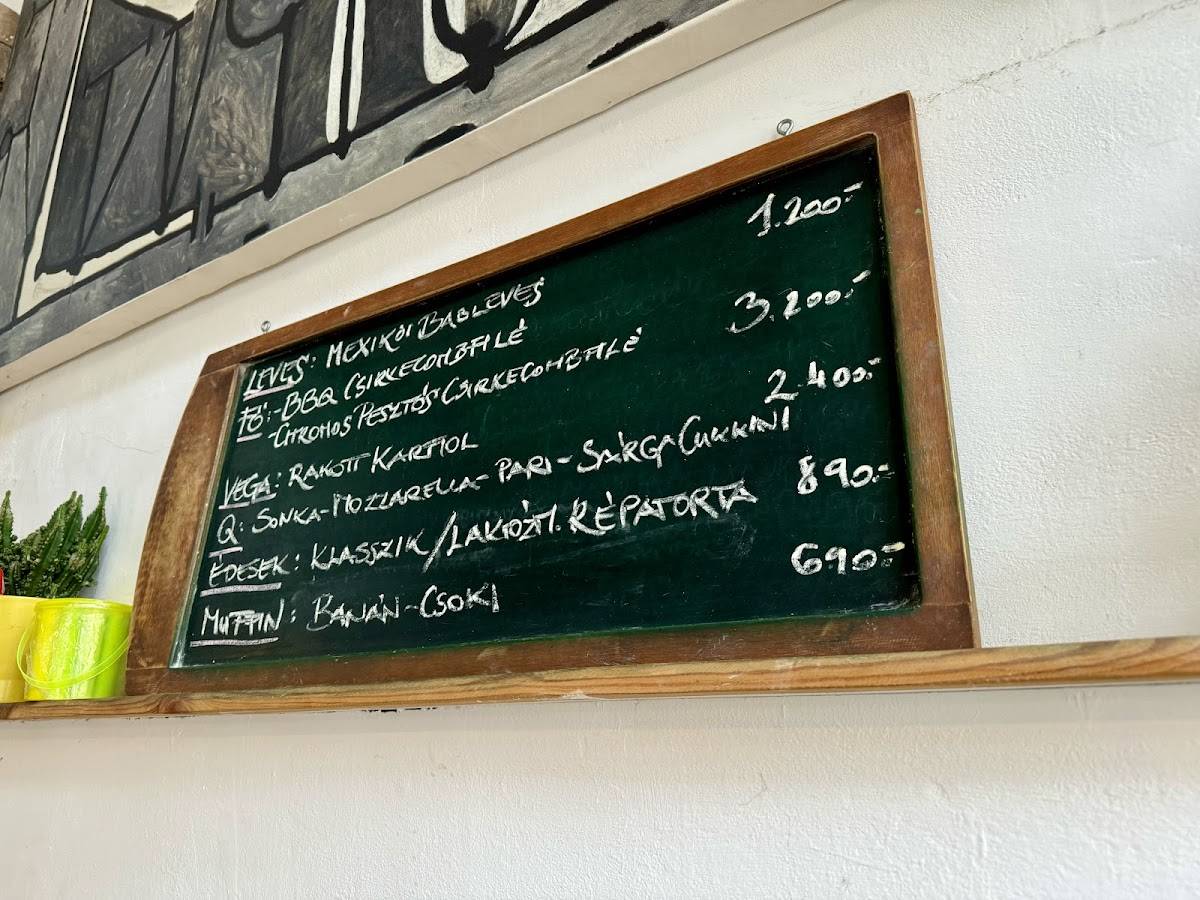 LEVES: MEXIKÓI BABLEVES 1.200.-
FŐ: - BBQ CSIRKECOMBFILÉ 3.200.-
- CITROMOS PESZTÓS CSIRKECOMBFILÉ
VEGA: RAKOTT KARFIOL 2.400.-
Q: SONKA-MOZZARELLA-PARI-SÁRGA CUKKINI
ÉDESEK: KLASSZIK/LAKTÓZM. RÉPATORTA 890.-
MUFFIN: BANÁN-CSOKI 690.-